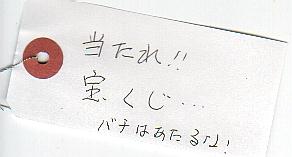 当たれ!!
宝くじ...
バチはあたる♪!